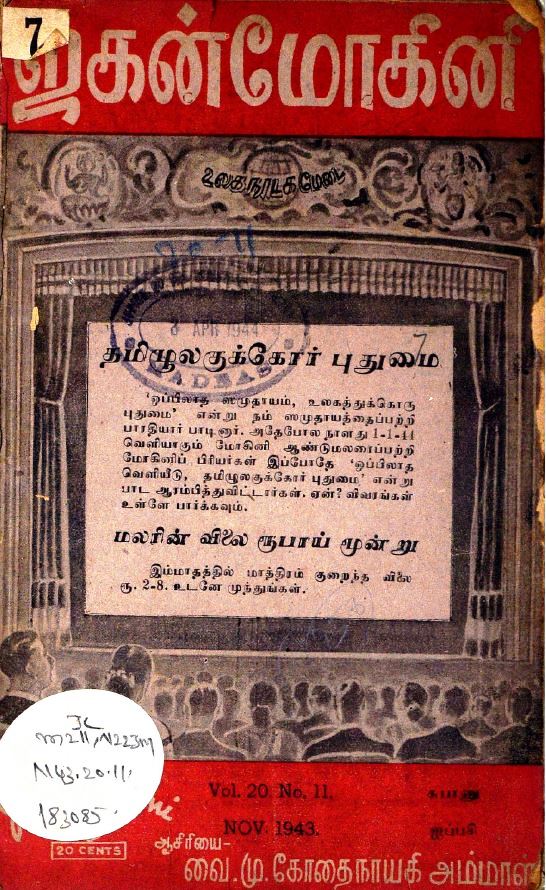 7
ஜகன்மோகினி
உலகநாடகமேடை
3 APR 1944
MADRAS
7
தமிழுலகுக்கோர் புதுமை
'ஒப்பிலாத ஸமுதாயம், உலகத்துக்கொரு
புதுமை' என்று நம் ஸமுதாயத்தைப்பற்றி
பாரதியார் பாடினார். அதேபோல நாளது 1-1-44
வெளியாகும் மோகினி ஆண்டுமலரைப்பற்றி
மோகினிப் பிரியர்கள் இப்போதே 'ஒப்பிலாத
வெளியீடு, தமிழுலகுக்கோர் புதுமை' என்று
பாட ஆரம்பித்துவிட்டார்கள். ஏன்? விவரங்கள்
உள்ளே பார்க்கவும்.
மலரின் விலை ரூபாய் மூன்று
இம்மாதத்தில் மாத்திரம் குறைந்த விலை
ரூ. 2-8. உடனே முந்துங்கள்.
N43.20.11.
183085.
Vol. 20 No. 11.
சுபானு
NOV 1943.
ஐப்பசி
20 CENTS
ஆசிரியை-
வை.மு.கோதைநாயகி அம்மாள்